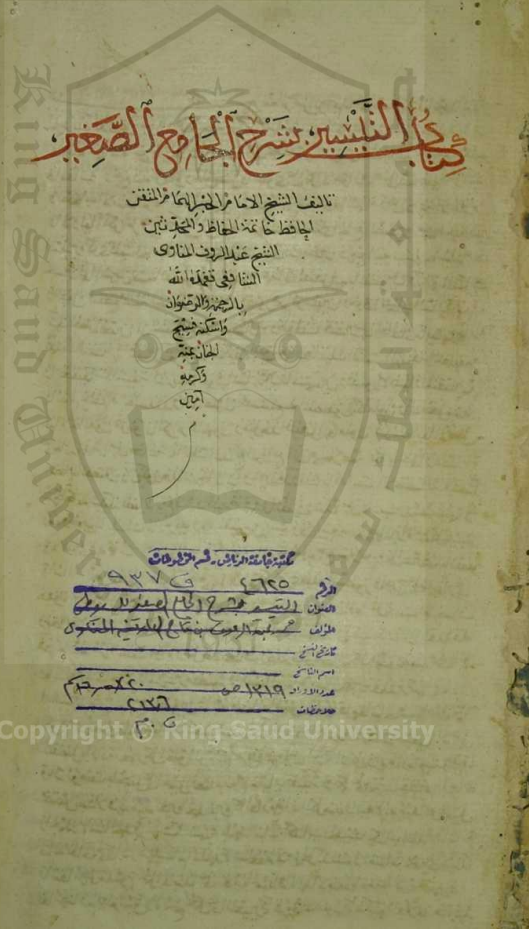 كتاب التيسير بشرح الجامع الصغير
تاليف الشيخ الامام الحبر الهمام المتقن
الحافظ خاتمة الحفاظ والمحدثين
الشيخ عبد الروف المناوى
الشافعى تغمده الله
بالرحمة والرضوان
واسكنه فسيح
الجنان بمنه
وكرمه
امين
م
مكتبة جامعة الرياض - قسم المخطوطات
الرقم ٤٦٢٥ ف ٩٣٧
العنوان التيسير بشرح الجامع الصغير للسيوطي
المؤلف محمد عبد الرؤوف بن تاج العارفين المناوي
تاريخ النسخ
اسم الناسخ
عدد الاوراق ١٣١٩ ص
ملاحظات
Copyright © King Saud University
King Saud University
جامعة الملك سعود